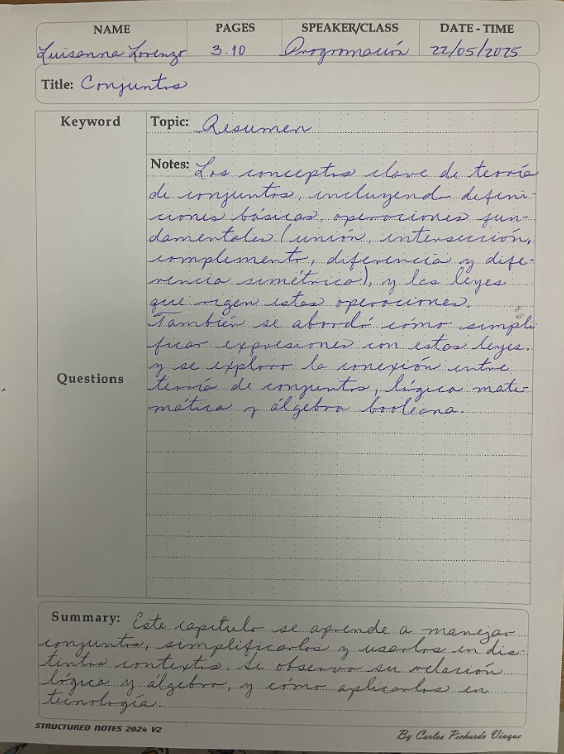 NAME PAGES SPEAKER/CLASS DATE - TIME
Luisanna Lorenzo 3.10 Programación 22/05/2025
Title: Conjuntos
Keyword Topic: Resumen
Notes: Los conceptos clave de teoría
de conjuntos, incluyendo defini-
ciones básicas, operaciones fun-
damentales (unión, intersección,
complemento, diferencia y dife-
rencia simétrica), y las leyes
que rigen estas operaciones.
También se abordó cómo simpli
ficar expresiones con estas leyes.
y se exploro la conexión entre
Questions teoría de conjuntos, lógica mate-
mática y álgebra booleana.
Summary: Este capítulo se aprende a manejar
conjuntos, simplificarlos y usarlos en dis-
tintos contextos. Se observa su relación
lógica y álgebra, y cómo aplicarlos en
tecnología.
STRUCTURED NOTES 2024 V2 By Carlos Pichardo Vieque